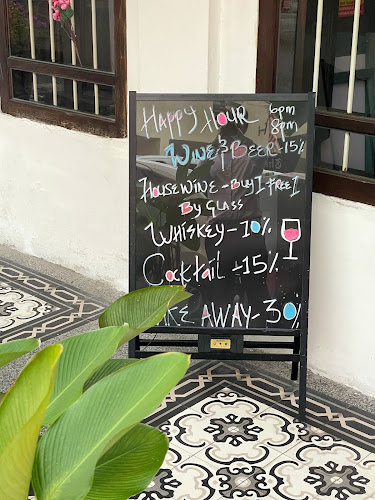 HAPPY HOUR 6pm
8pm
WINE & BEER - 15%
HOUSE WINE - BUY 1 FREE 1
By GLASS
WHISKEY - 10%
Cocktail - 15%
AWAY - 30%